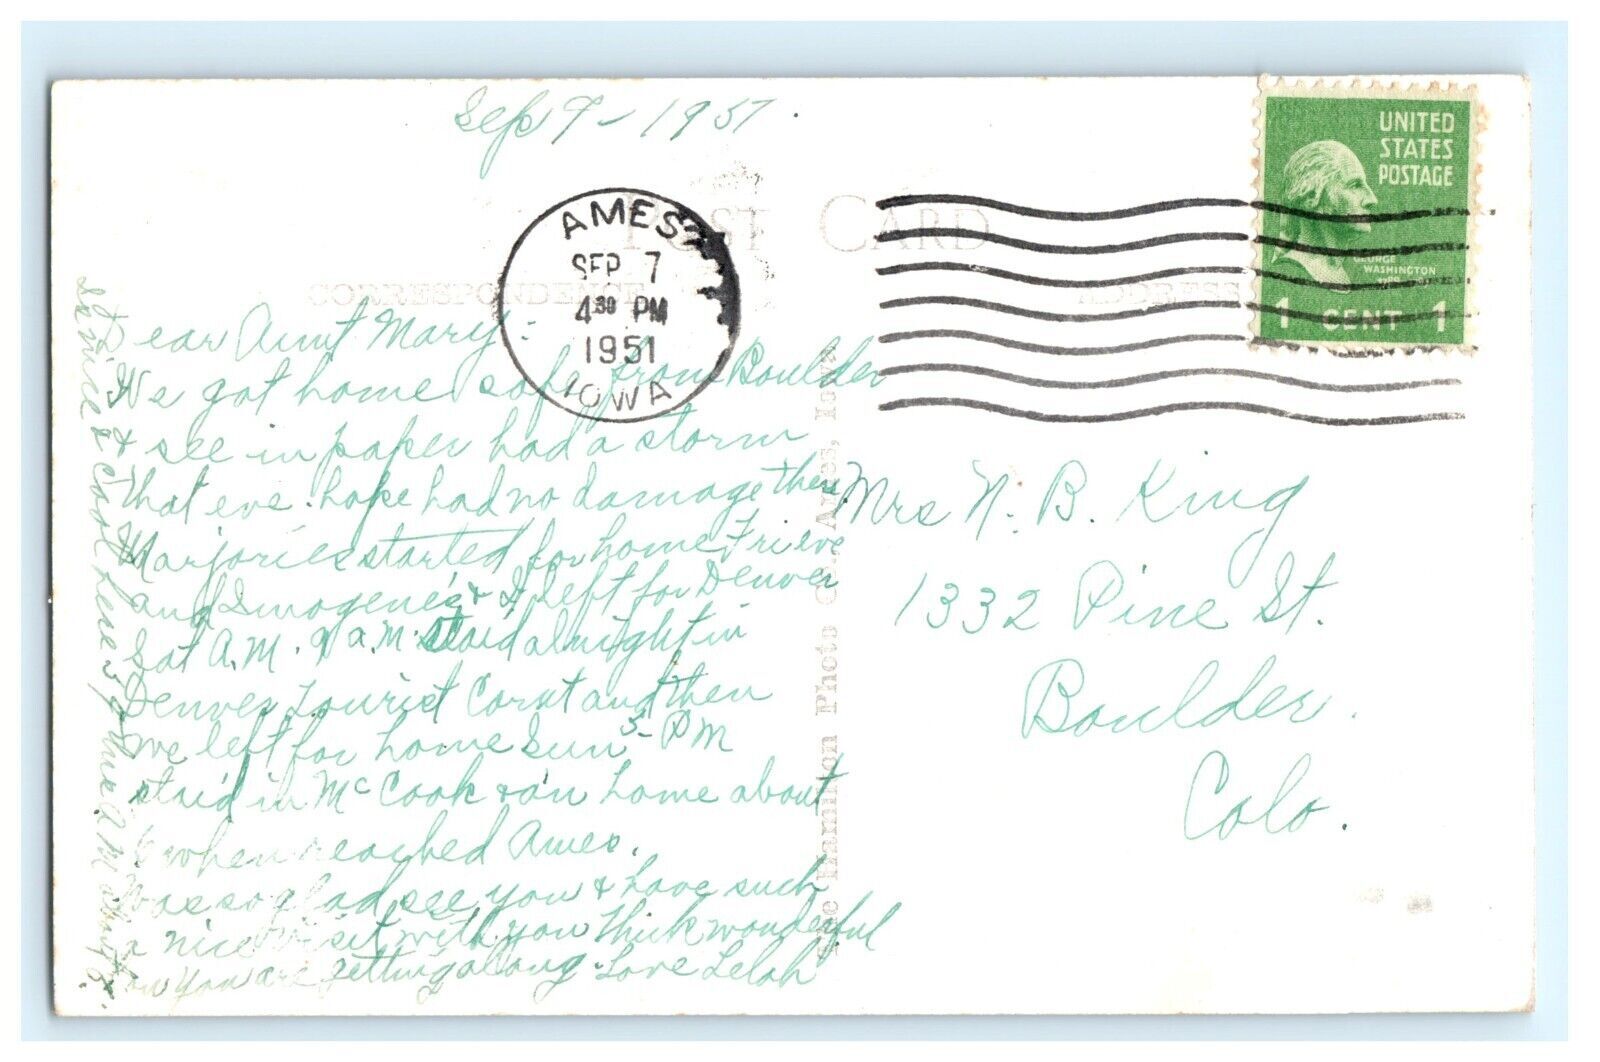 Sep 7 - 1951.
UNITED
STATES
POSTAGE
GEORGE
WASHINGTON
1 CENT 1
AMES
SEP 7
4 30 PM
1951
IOWA
POST CARD
CORRESPONDENCE
ADDRESS
Dear Aunt Mary:
We got home safe from Boulder
& see in paper had a storm
that eve. hope had no damage there
Marjories started for home Fri eve
and Imogene's & I left for Denver
Sat A.M. 9 a.m. staid all night in
Denver tourist Cort and then
we left for home Sun 5 PM
staid in McCook & on home about
6 when reached Ames.
Was so glad see you & have such
a nice visit with you think wonderful
you are getting along. Love Lelah
& Carol here
A M
The Hamilton Photo Co., Ames, Iowa
Mrs N. B. King
1332 Pine St.
Boulder.
Colo.